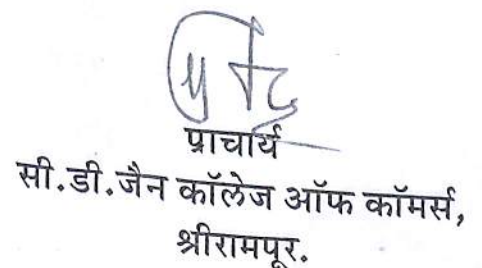 प्राचार्य
सी.डी.जैन कॉलेज ऑफ कॉमर्स,
श्रीरामपूर.